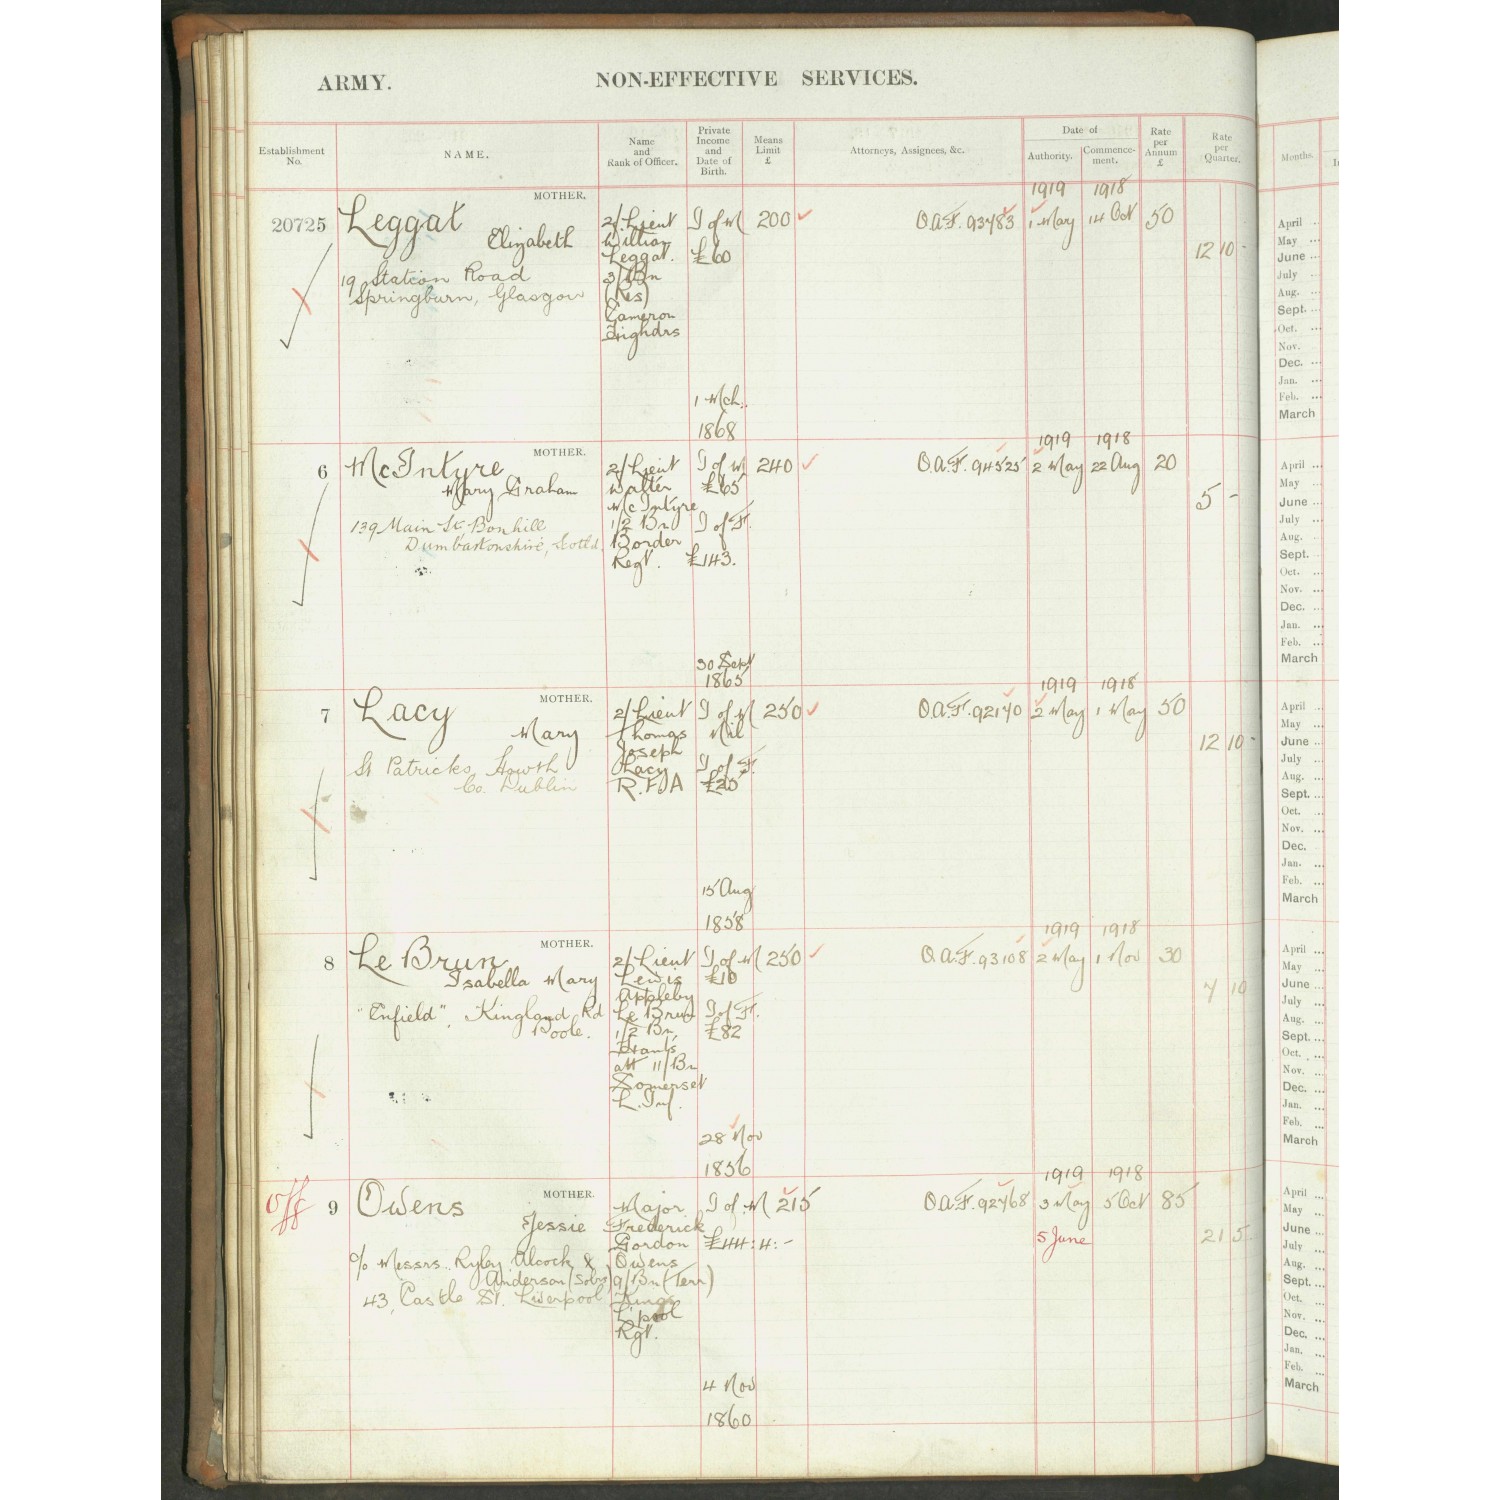 ARMY. NON-EFFECTIVE SERVICES.
Establishment No. NAME. Name and Rank of Officer. Private Income and Date of Birth. Means Limit £ Attorneys, Assignees, &c. Date of Authority. Commencement. Rate per Annum £ Rate per Quarter. Months.
MOTHER. 1919 1918
20725 Leggat 2/Lieut I of M 200 O.A.F. 93783 1 May 14 Oct 50
Elizabeth William £60 12 10 -
Leggat.
19, Station Road 3/Bn
Springburn, Glasgow (Res)
Cameron
Highdrs
1 Mch.
1868
MOTHER. 1919 1918
6 McIntyre 2/Lieut I of M 240 O.A.F. 94525 2 May 22 Aug 20
Mary Graham Walter £65 5 -
McIntyre
139 Main St, Bonhill 1/2 Bn I of F.
Dumbartonshire, Scotld. Border
Regt. £143.
30 Sept
1865
MOTHER. 1919 1918
7 Lacy 2/Lieut I of M 250 O.A.F. 92170 2 May 1 May 50
Mary Thomas Nil 12 10 -
Joseph
St Patricks, Howth Lacy I of F.
Co. Dublin R.F.A £20
15 Aug
1858
MOTHER. 1919 1918
8 Le Brun 2/Lieut I of M 250 O.A.F. 93108 2 May 1 Nov 30
Isabella Mary Lewis £10
Appleby 7 10
"Enfield", Kingland Rd Le Brun I of F.
Poole. 1/2 Bn, £82
Hants
att 11/Bn
Somerset
L. Inf.
28 Nov
1856
MOTHER. 1919 1918
Off 9 Owens Major I of M 215 O.A.F. 92768 3 May 5 Oct 85
Jessie Frederick
Gordon £44:4:- 5 June 21 5 -
c/o Messrs. Ryley, Alcock & Owens
Anderson (Sobrs) 9/Bn (Terr)
43, Castle St. Liverpool Kings
L'pool
Rgt.
4 Nov
1860
April ...
May ...
June ...
July ...
Aug. ...
Sept. ...
Oct. ...
Nov. ...
Dec. ...
Jan. ...
Feb. ...
March
April ...
May ...
June ...
July ...
Aug. ...
Sept. ...
Oct. ...
Nov. ...
Dec. ...
Jan. ...
Feb. ...
March
April ...
May ...
June ...
July ...
Aug. ...
Sept. ...
Oct. ...
Nov. ...
Dec. ...
Jan. ...
Feb. ...
March
April ...
May ...
June ...
July ...
Aug. ...
Sept. ...
Oct. ...
Nov. ...
Dec. ...
Jan. ...
Feb. ...
March
April ...
May ...
June ...
July ...
Aug. ...
Sept. ...
Oct. ...
Nov. ...
Dec. ...
Jan. ...
Feb. ...
March